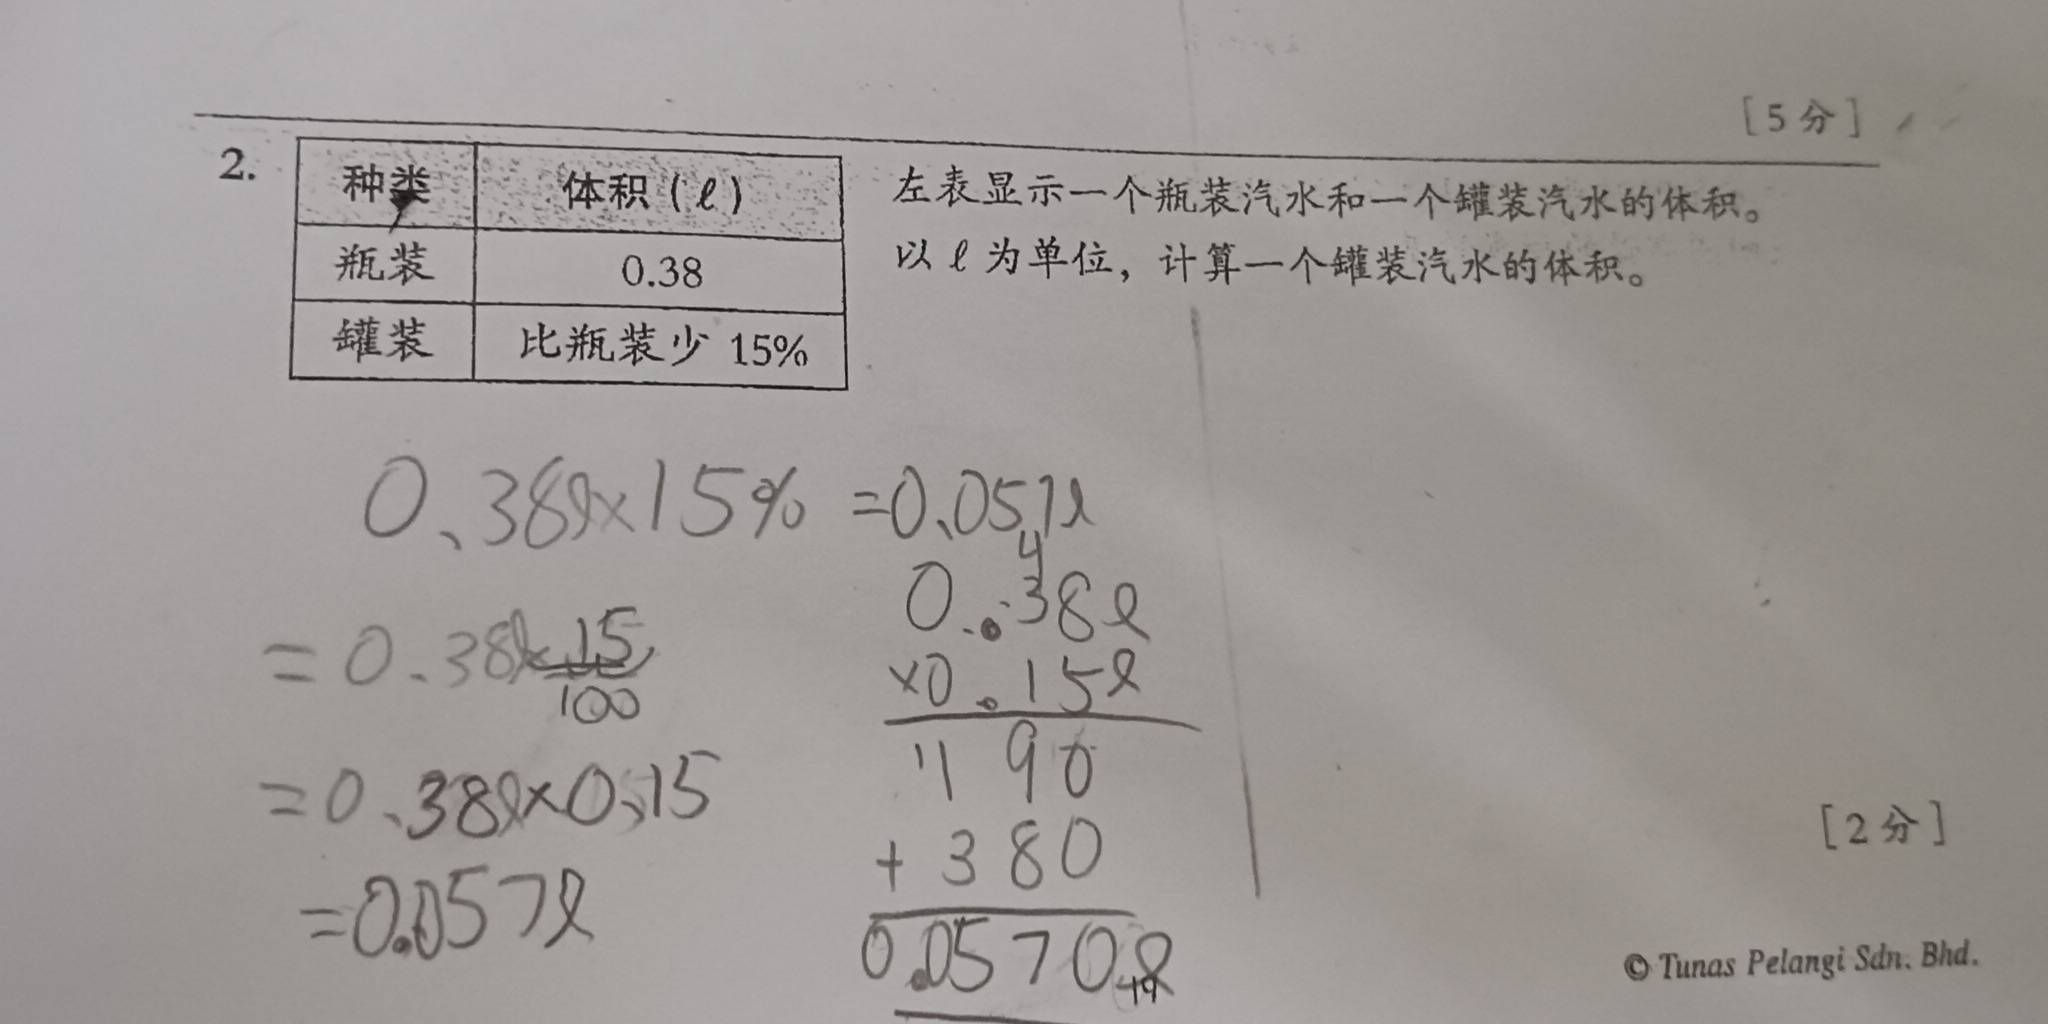 [5分]
2.
种类 体积(ℓ)
瓶装 0.38
罐装 比瓶装少 15%
左表显示一个瓶装汽水和一个罐装汽水的体积。
以 ℓ 为单位，计算一个罐装汽水的体积。
0.38ℓ×15% =0.057ℓ
=0.38ℓ×15/100
=0.38ℓ×0.15
=0.057ℓ
4
0.38ℓ
×0.15ℓ
190
+380
0.0570ℓ
[2分]
© Tunas Pelangi Sdn. Bhd.